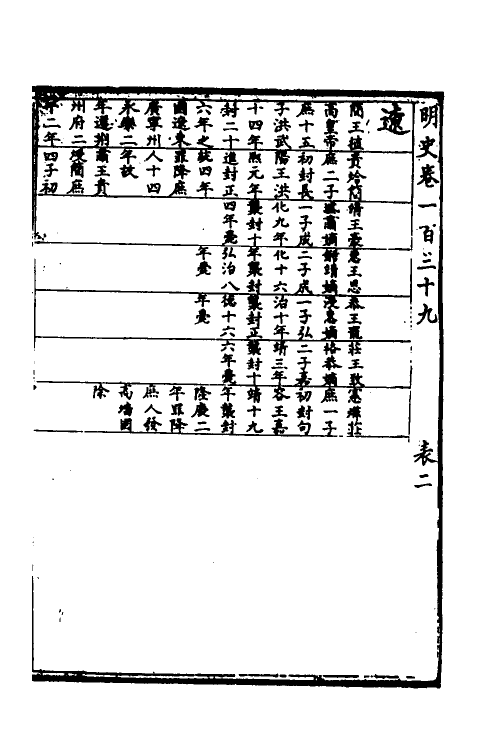 明史卷一百三十九
表二
遼
簡王植
高皇帝
庶十五
子洪武
十四年
封二十
六年之
國遼東
廣寧州
永樂二
年遷荊
州府二
十二年
貴烚簡
庶二子
初封長
陽王洪
熙元年
進封正
統四年
罪降庶
人十四
年故
肅王貴
㷂簡庶
四子初
靖王豪
墭肅嫡
一子成
化九年
襲封十
四年薨
惠王恩
靖嫡
二子成
化十六
年襲封
弘治八
年薨
恭王寵
涭惠嫡
一子弘
治十年
襲封正
德十六
年薨
莊王致
格恭嫡
二子嘉
靖三年
襲封十
六年薨
憲㸅莊
庶一子
初封句
容王嘉
靖十九
年襲封
隆慶二
年罪降
庶人發
高墻國
除